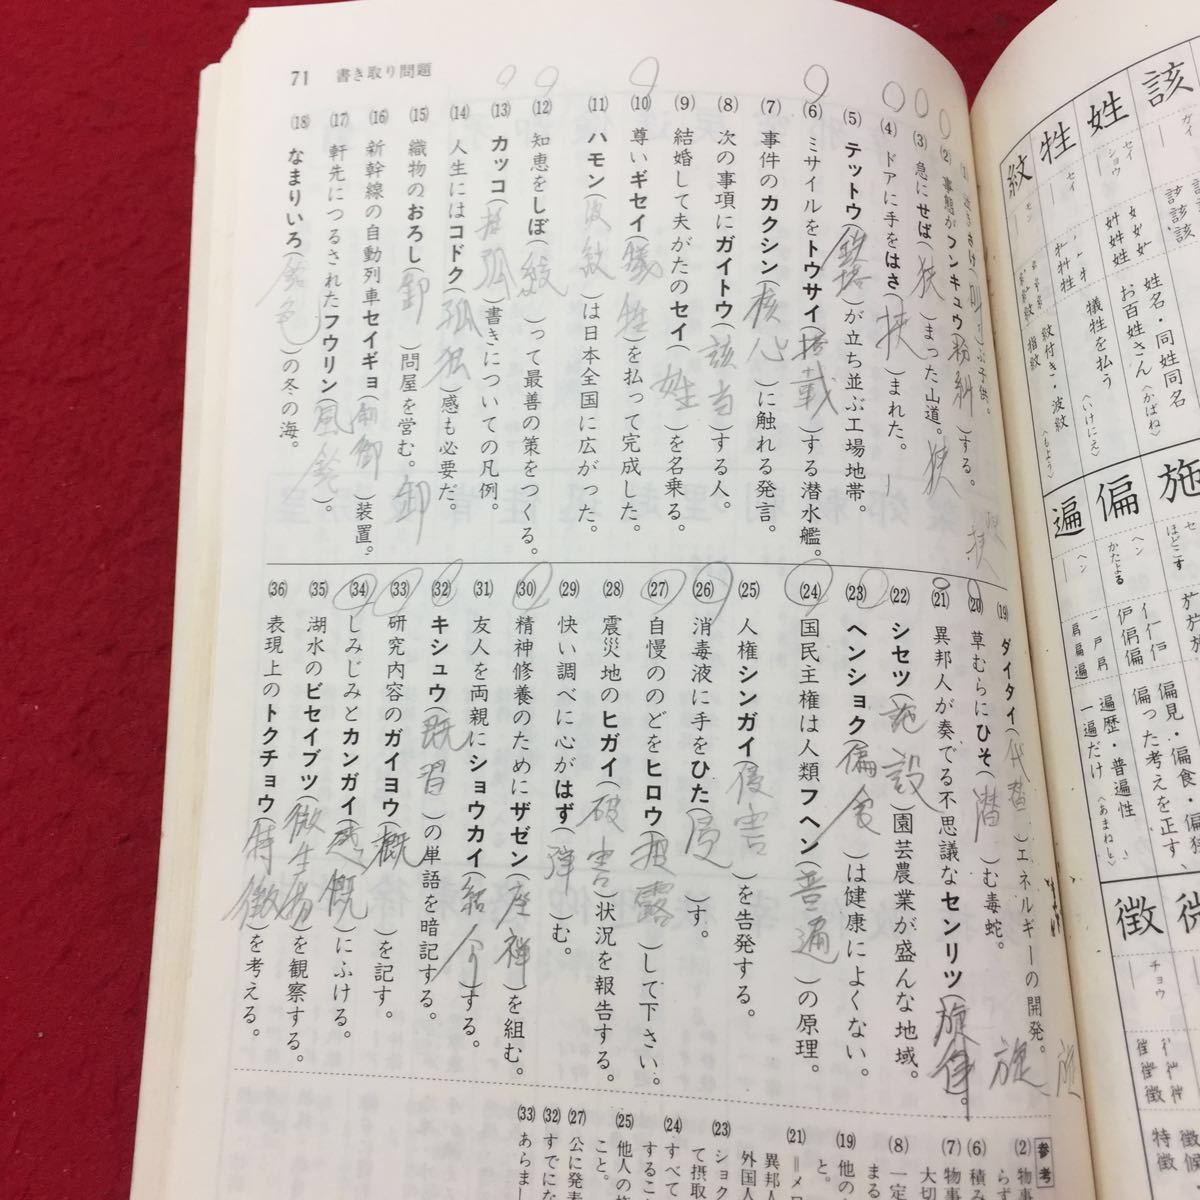 71　書き取り問題
(2) 事態がフンキュウ(紛糾)する。
(3) 急にせば(狭)まった山道。
(4) ドアに手をはさ(挟)まれた。
(5) テットウ(鉄塔)が立ち並ぶ工場地帯。
(6) ミサイルをトウサイ(搭載)する潜水艦。
(7) 事件のカクシン(核心)に触れる発言。
(8) 次の事項にガイトウ(該当)する人。
(9) 結婚して夫がたのセイ(姓)を名乗る。
(10) 尊いギセイ(犠牲)を払って完成した。
(11) ハモン(波紋)は日本全国に広がった。
(12) 知恵をしぼ()って最善の策をつくる。
(13) カッコ(括弧)書きについての凡例。
(14) 人生にはコドク(孤独)感も必要だ。
(15) 織物のおろし(卸)問屋を営む。
(16) 新幹線の自動列車セイギョ(制御)装置。
(17) 軒先につるされたフウリン(風鈴)。
(18) なまりいろ(鉛色)の冬の海。
(19) ダイタイ(代替)エネルギーの開発。
(20) 草むらにひそ(潜)む毒蛇。
(21) 異邦人が奏でる不思議なセンリツ(旋律)。
(22) シセツ(施設)園芸農業が盛んな地域。
(23) ヘンショク(偏食)は健康によくない。
(24) 国民主権は人類フヘン(普遍)の原理。
(25) 人権シンガイ(侵害)を告発する。
(26) 消毒液に手をひた(浸)す。
(27) 自慢ののどをヒロウ(披露)して下さい。
(28) 震災地のヒガイ(破害)状況を報告する。
(29) 快い調べに心がはず(弾)む。
(30) 精神修養のためにザゼン(座禅)を組む。
(31) 友人を両親にショウカイ(紹介)する。
(32) キシュウ(既習)の単語を暗記する。
(33) 研究内容のガイヨウ(概)を記す。
(34) しみじみとカンガイ(感慨)にふける。
(35) 湖水のビセイブツ(微生物)を観察する。
(36) 表現上のトクチョウ(特徴)を考える。
参考
(2) 物事
らず
(6) 積み
(7) 物事
大切
(8) 一定
まる
(19) 他の
と。
(21) ＝メロ
異邦人
外国人
(23) ショク
て摂取
(24) すべて
すること
(25) 他人の
こと。
(27) 公に発表
(32) すでにな
(33) あらまし
該
ガイ
該該該
姓
セイ
ショウ
姓名・同姓同名
お百姓さん〈かばね〉
牲
セイ
犠牲を払う〈いけにえ〉
紋
モン
紋付き・波紋
指紋〈もよう〉
施
セ
ほどこす
偏
ヘン
かたよる
偏見・偏食・偏
偏った考えを正す
遍
ヘン
遍歴・普遍性
一遍だけ〈あまねく〉
徴
チョウ
特徴
徴候